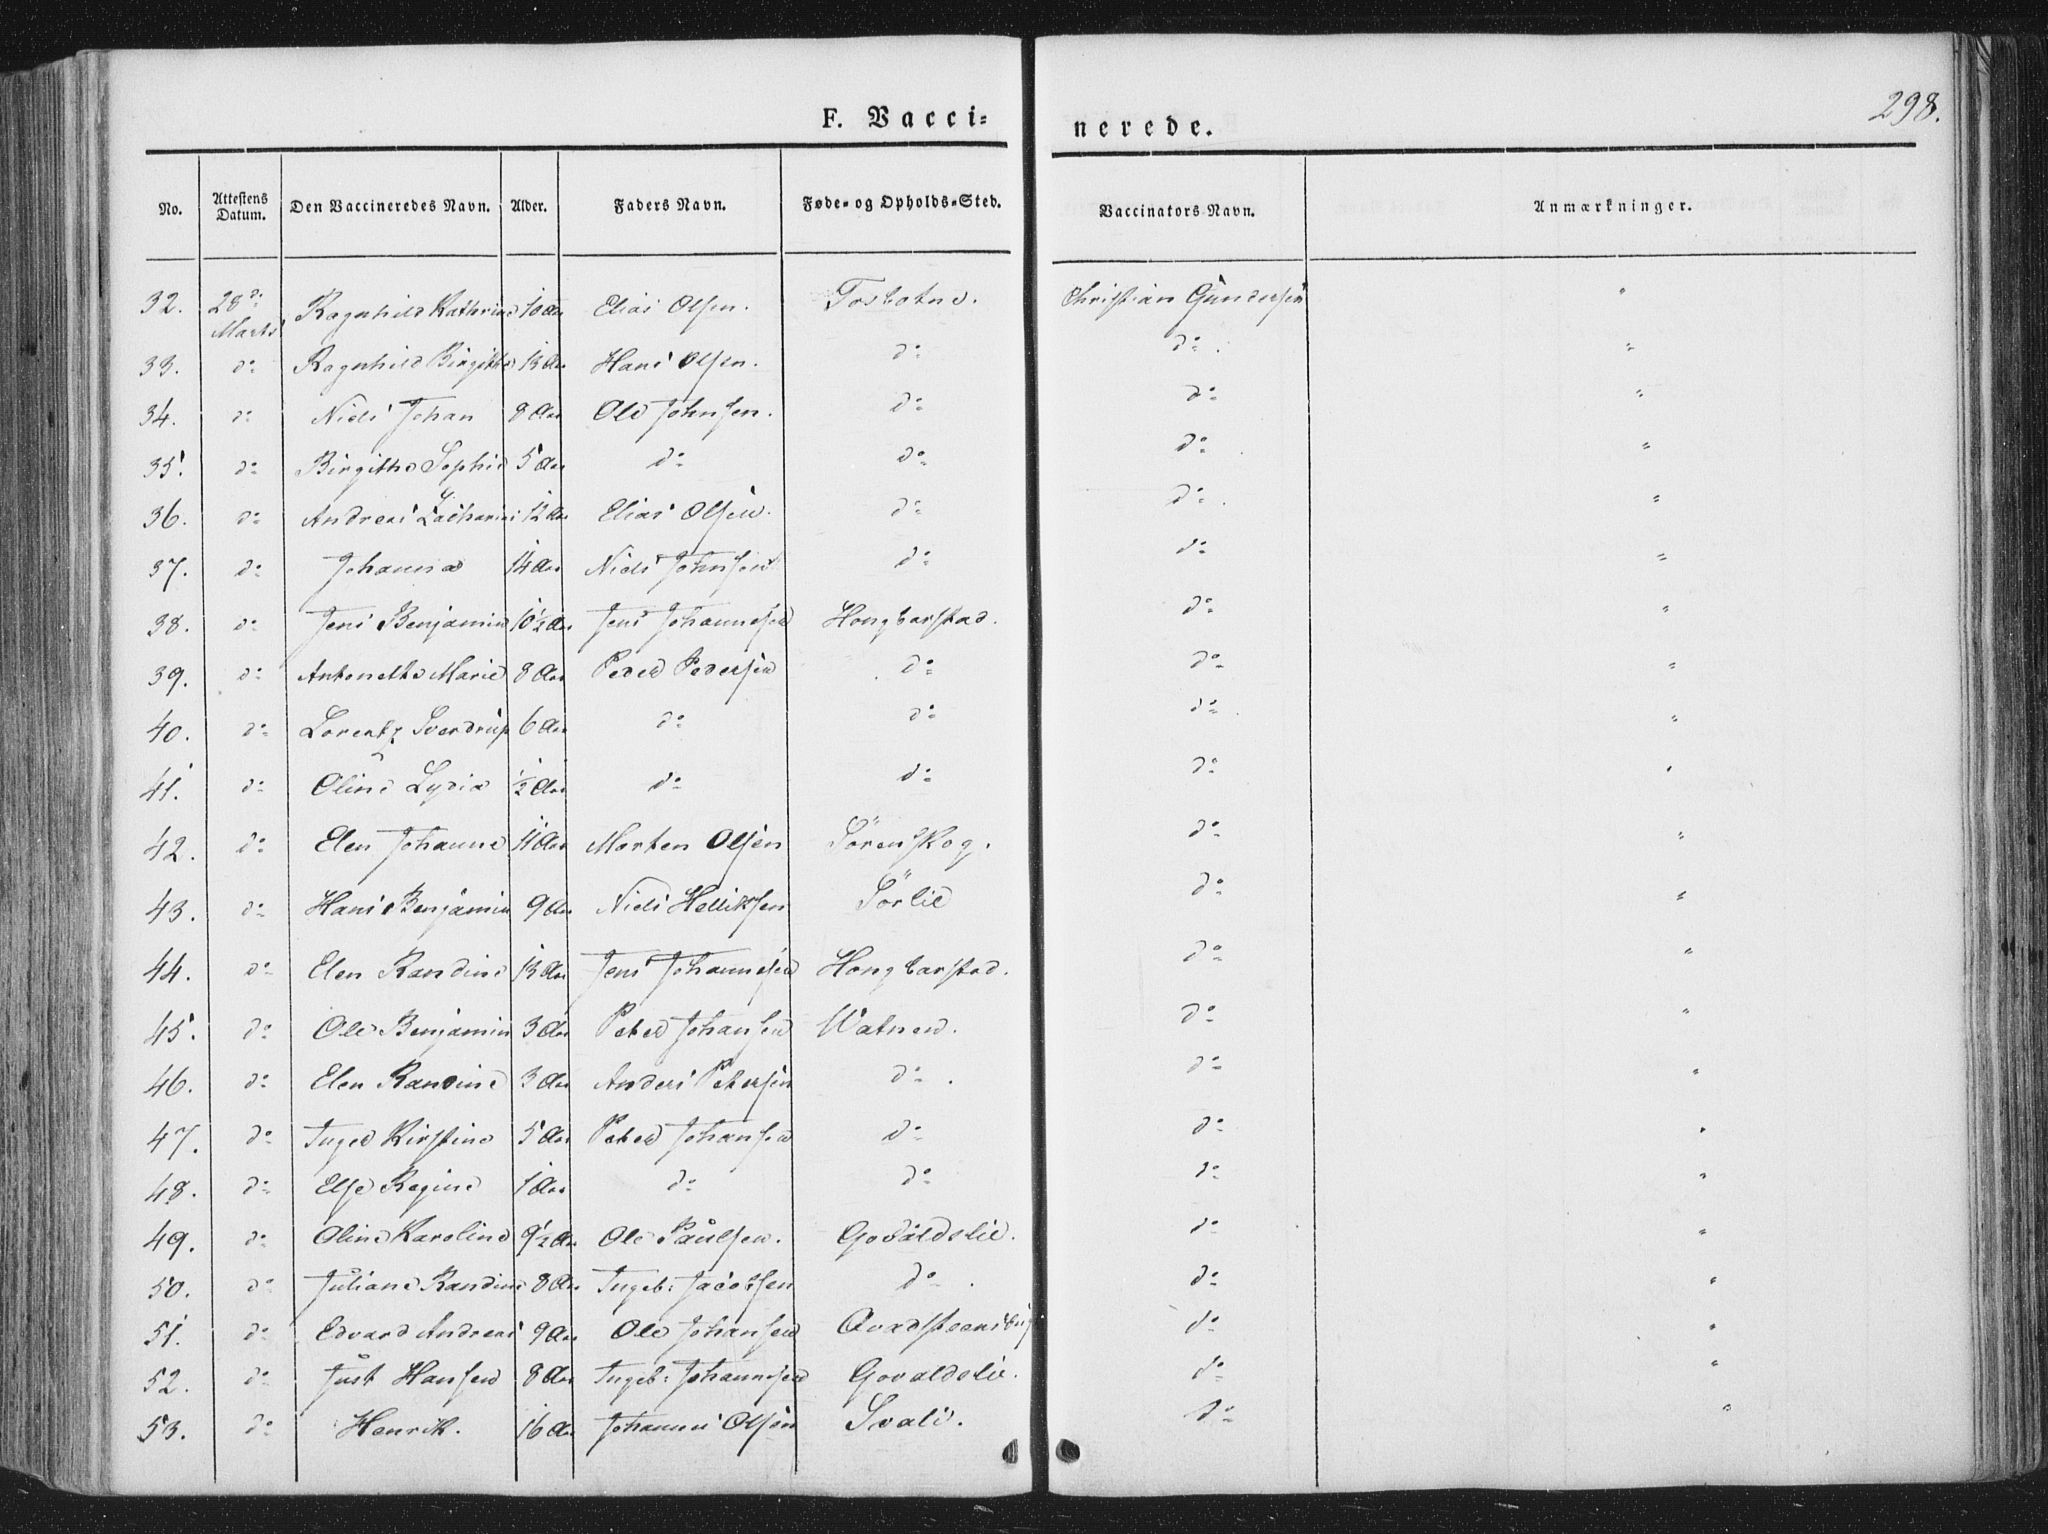 298.
F. Vacci= nerede.
No. Attestens Datum. Den Vaccineredes Navn. Alder. Faders Navn. Føde= og Opholds=Sted. Vaccinators Navn. Anmærkninger.
32. 28d: Marts Ragnhild Kathrine 10 Aar Elias Olsen. Tosbotne. Christian Gundersen "
33. do Ragnhild Birgithe 13 Aar Hans Olsen. do do. "
34. do Niels Johan 8 Aar Ole Johnsen. do do "
35. do Birgithe Sophie 5 Aar do do do "
36. do Andreas Zacharias 12 Aar Elias Olsen. do do. "
37. do Johanna 14 Aar Niels Johnsen do do "
38. do Jens Benjamin 10½ Aar Jens Johannesen Hongbarstad. do "
39. do Antonethe Marie 8 Aar Peder Pedersen do do "
40. do Lorentz Sverdrup 6 Aar do do do. "
41. do Oline Lydia ½ Aar do do do "
42. do Elen Johanne 11 Aar Morten Olsen Sörenskog. do "
43. do Hans Benjamin 9 Aar Niels Helliksen Sörlie do "
44. do Elen Randine 13 Aar Jens Johannesen Hongbarstad. do "
45. do Ole Benjamin 3 Aar Peter Johansen Watnen. do "
46. do Elen Randine 3 Aar Anders Petersen do. do "
47. do Inger Kirstine 5 Aar Peter Johansen do do "
48. do Else Regine 1 Aar do do do "
49. do Oline Karoline 9½ Aar Ole Paulsen. Govaldslie. do "
50. do Juliane Randine 8 Aar Ingeb: Jacobsen do. do "
51. do Edvard Andreas 9 Aar Ole Johansen do "
52. do Just Hansen 8 Aar Ingeb: Johannesen Govaldslie. do "
53. do Henrik. 16 Aar Johannes Olsen Svalie. do "